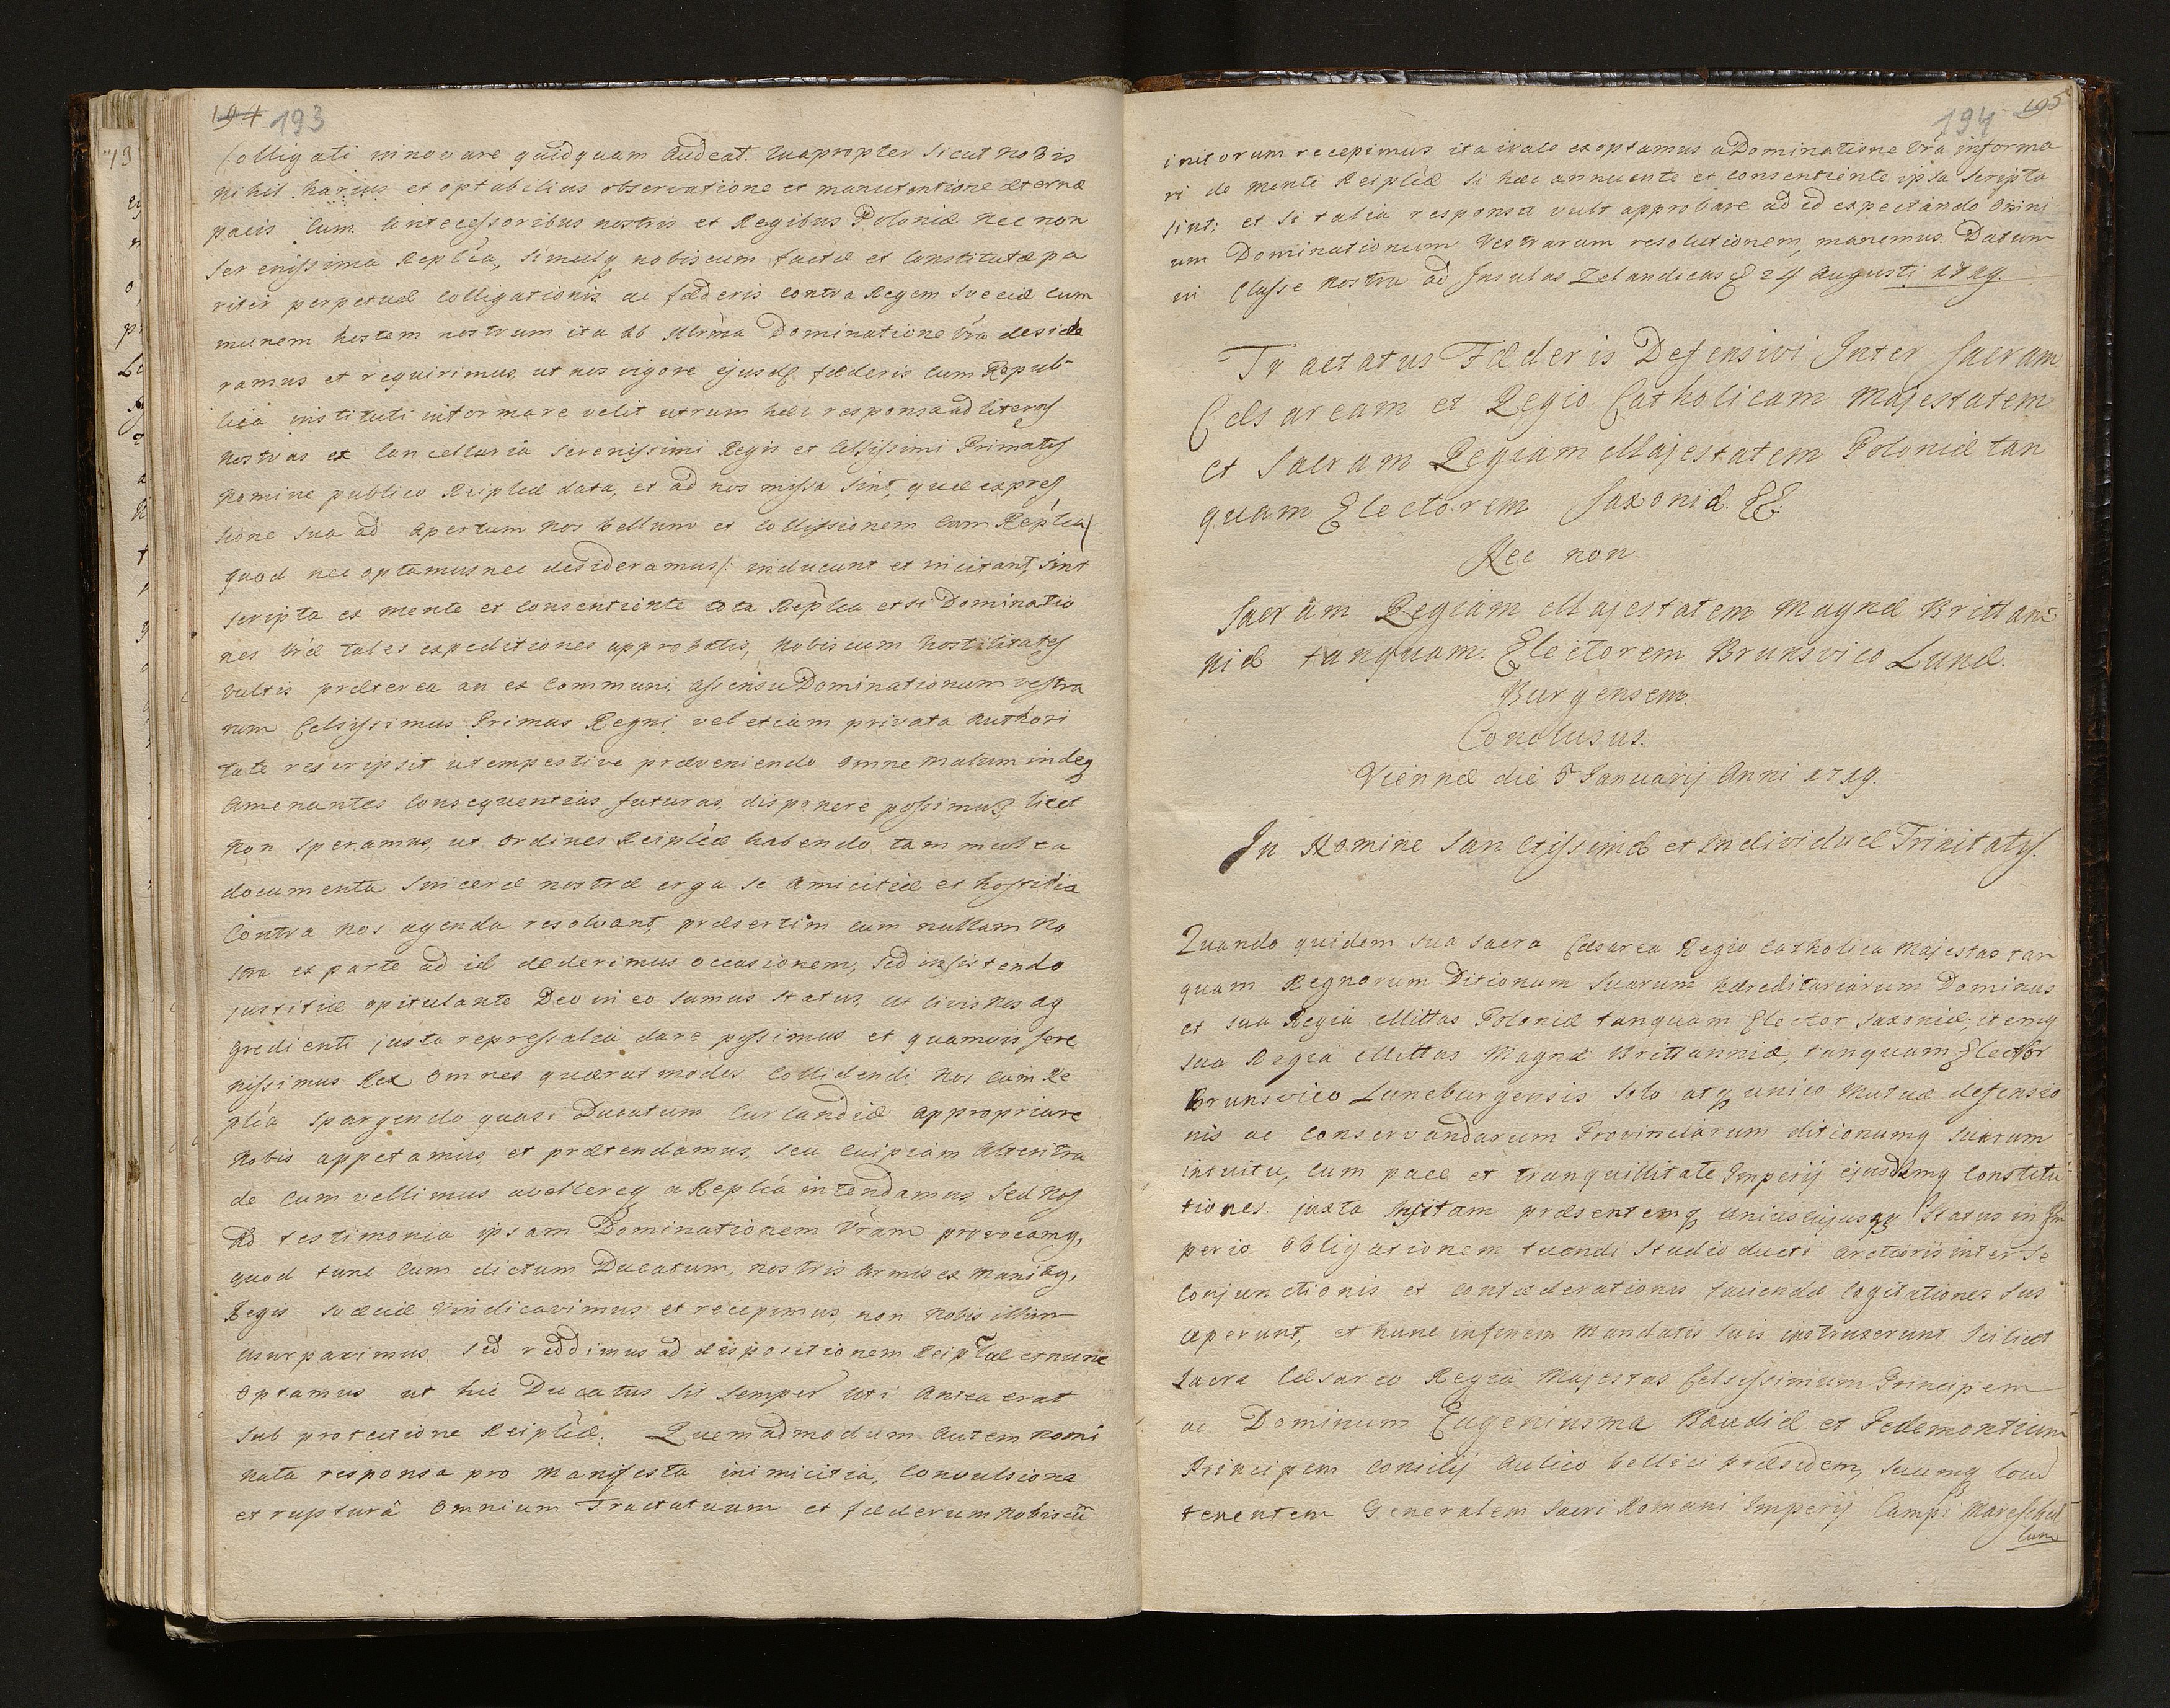 194 193
Colligati innovare quidquam audeat. Quapropter sicut nobis
nihil harius et optabilius observatione et manutentione æternæ
pacis cum Antecessoribus nostris et Regibus Poloniæ nec non
serenissima Replĉa, simulq nobiscum factæ et constitutæ pa
riter perpetuæ colligationis ac fœderis contra Regem Sveciæ com
munem hostem nostrum ita ab Dominatione Vrã deside
ramus et requirimus, ut nos vigore ejusd. fœderis cum Repub
lica instituti informare velit utrum hæc responsa ad literas
nostras ex Cancellaria Serenissimi Regis et Celsissimi Primatis
nomine publico Reiplcæ data, et ad nos missa sint, quæ expres
sione sua ad apertum nos bellum et collissionem cum Replca /:
quod nec optamus nec desideramus /: inducunt et incitant, sint
scripta ex mente et consentiente tota Replca et si Dominatio
nes Vræ tales expeditiones approbatis, nobiscum hostilitates
vultis præterea an ex communi assensu Dominationum vestra
rum Celsissimus Primas Regni, vel etiam privata Authori
tate rescripsit ut tempestive præveniendo omne malum indeq
amenantes consequentias futuras, disponere possimus, licet
non speramus, ut ordines Reiplcæ habendo tam multa
documenta sinceræ nostræ erga se amicitiæ et hostilia
Contra nos agenda resolvant, præsertim cum nullam no
stra ex parte ad id dederimus occasionem, sed insistendo
justitiæ opitulante Deo in eo sumus statu, ut nos ag
gredienti justa repressalia dare possimus et quamvis Sere
nissimus Rex omnes quærat modos collidendi nos cum Re
plca spargendo quasi Ducatum Curlandiæ appropriare
nobis appetamus et prætendamus, seu cuipiam
de cum vellimus avellereq a Replca intendamus, Sed nos
Ad testimonia ipsam Dominationem Vram provocamq,
quod tunc cum dictum Ducatum, nostris armis ex manibq,
Regis Sveciæ vindicavimus et recepimus, non nobis illum
usurpavimus, sed reddimus ad dispositionem Reiplcæ et nunc
optamus ut hic Ducatus sit semper uti antea erat
sub protectione Reiplcæ. Quemadmodum autem nomi
nata responsa pro manifesta inimicitia, convulsione
et rupturâ omnium Tractatuum et fœderum nobiscũ
194 195
initorum recepimus ita exoptamus a Dominatione Vrã informa
ri de mente Reiplcæ si hæc annuente et consentiente ipsa scripta
sint; et si talia responsa vult approbare ad id expectando omni
um Dominationum Vestrarum resolutionem, manemus. Datum
in Classe nostra ad Insulas Zelandicas d 24 Augusti 1719.
Tractatus Fœderis Defensivi Inter Sacram
Cæsaream et Regio Catholicam Majestatem
et Sacram Regiam Majestatem Poloniæ tan
quam Electorem Saxoniæ. &&.
Nec non
Sacram Regiam Majestatem Magnæ Brittan
niæ tanquam Electorem Brunsvico Lunæ.
Burgensem.
Conclusus.
Viennæ die 5 Januarij Anni 1719.
In Nomine Sanctissimæ et Individuæ Trinitatis.
Quando quidem sua sacra Cæsarea Regio Catholica Majestas tan
quam Regnorum Ditionum suarum hæreditariarum Dominus
et sua Regia Mittas Poloniæ tanquam Elector Saxoniæ, itemq
sua Regia Mittas Magnæ Brittanniæ, tanquam Elector
Brunsvico Luneburgensis solo atq unico mutuæ defensio
nis ac conservandarum Provinciarum ditionumq suarum
intuitu, cum pace et tranquillitate Imperij ejusdemq Constitu
tiones juxta insitam præsentemq uniuscujusq Status in Im
perio obligationem tuendi studio ducti arctioris inter se
Conjunctionis et confæderationis faciendæ cogitationes sus
ceperunt, et hunc infinem mandatis suis instruxerunt scilicet
Sacra Cæsareo Regia Majestas Celsissimum Principem
ac Dominum Eugenium a Sabaudiæ et Pedemontium
Principem consilij Aulico bellici præsidem, suumq locũ
tenentem Generalem Sacri Romani Imperij Campi Mareschal
lum